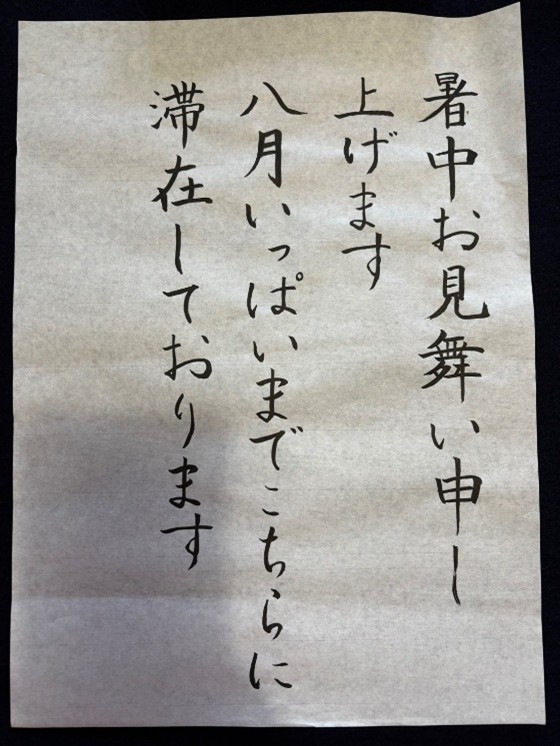 暑中お見舞い申し
上げます
八月いっぱいまでこちらに
滞在しております